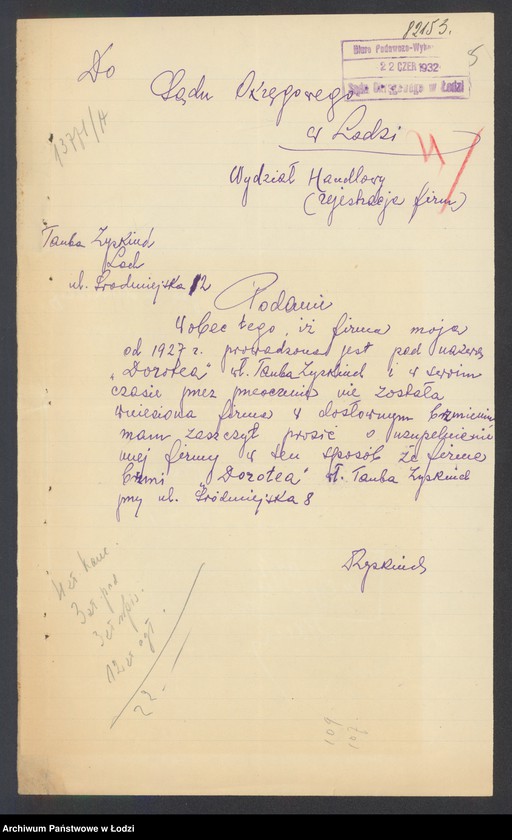 82153.
Biuro Podawczo-Wyko
22 CZER 1932
Sądu Okręgowego w Łodzi
5
Do
Sądu Okręgowego
w Lodzi
13771/A
Wydział Handlowy
(rejestracja firm)
Tauba Zyskind
Lodz
ul. Sródmiejska 12
Podanie
Wobec tego, iż firma moja
od 1927 r. prowadzona jest pod nazwą
"Dorotea" wł. Tauba Zyskind i w swoim
czasie przez przeoczenie nie została
wniesiona firma w dosłownym brzmieniu
mam zaszczyt prosić o uzupełnienie
mej firmy w ten sposób że firma
brzmi "Dorotea" wł. Tauba Zyskind
przy ul. Śródmiejska 8
TZyskind
3 zł. pod
3 zł wpis.
12 zł ogł.
22.
109
107
Archiwum Państwowe w Łodzi